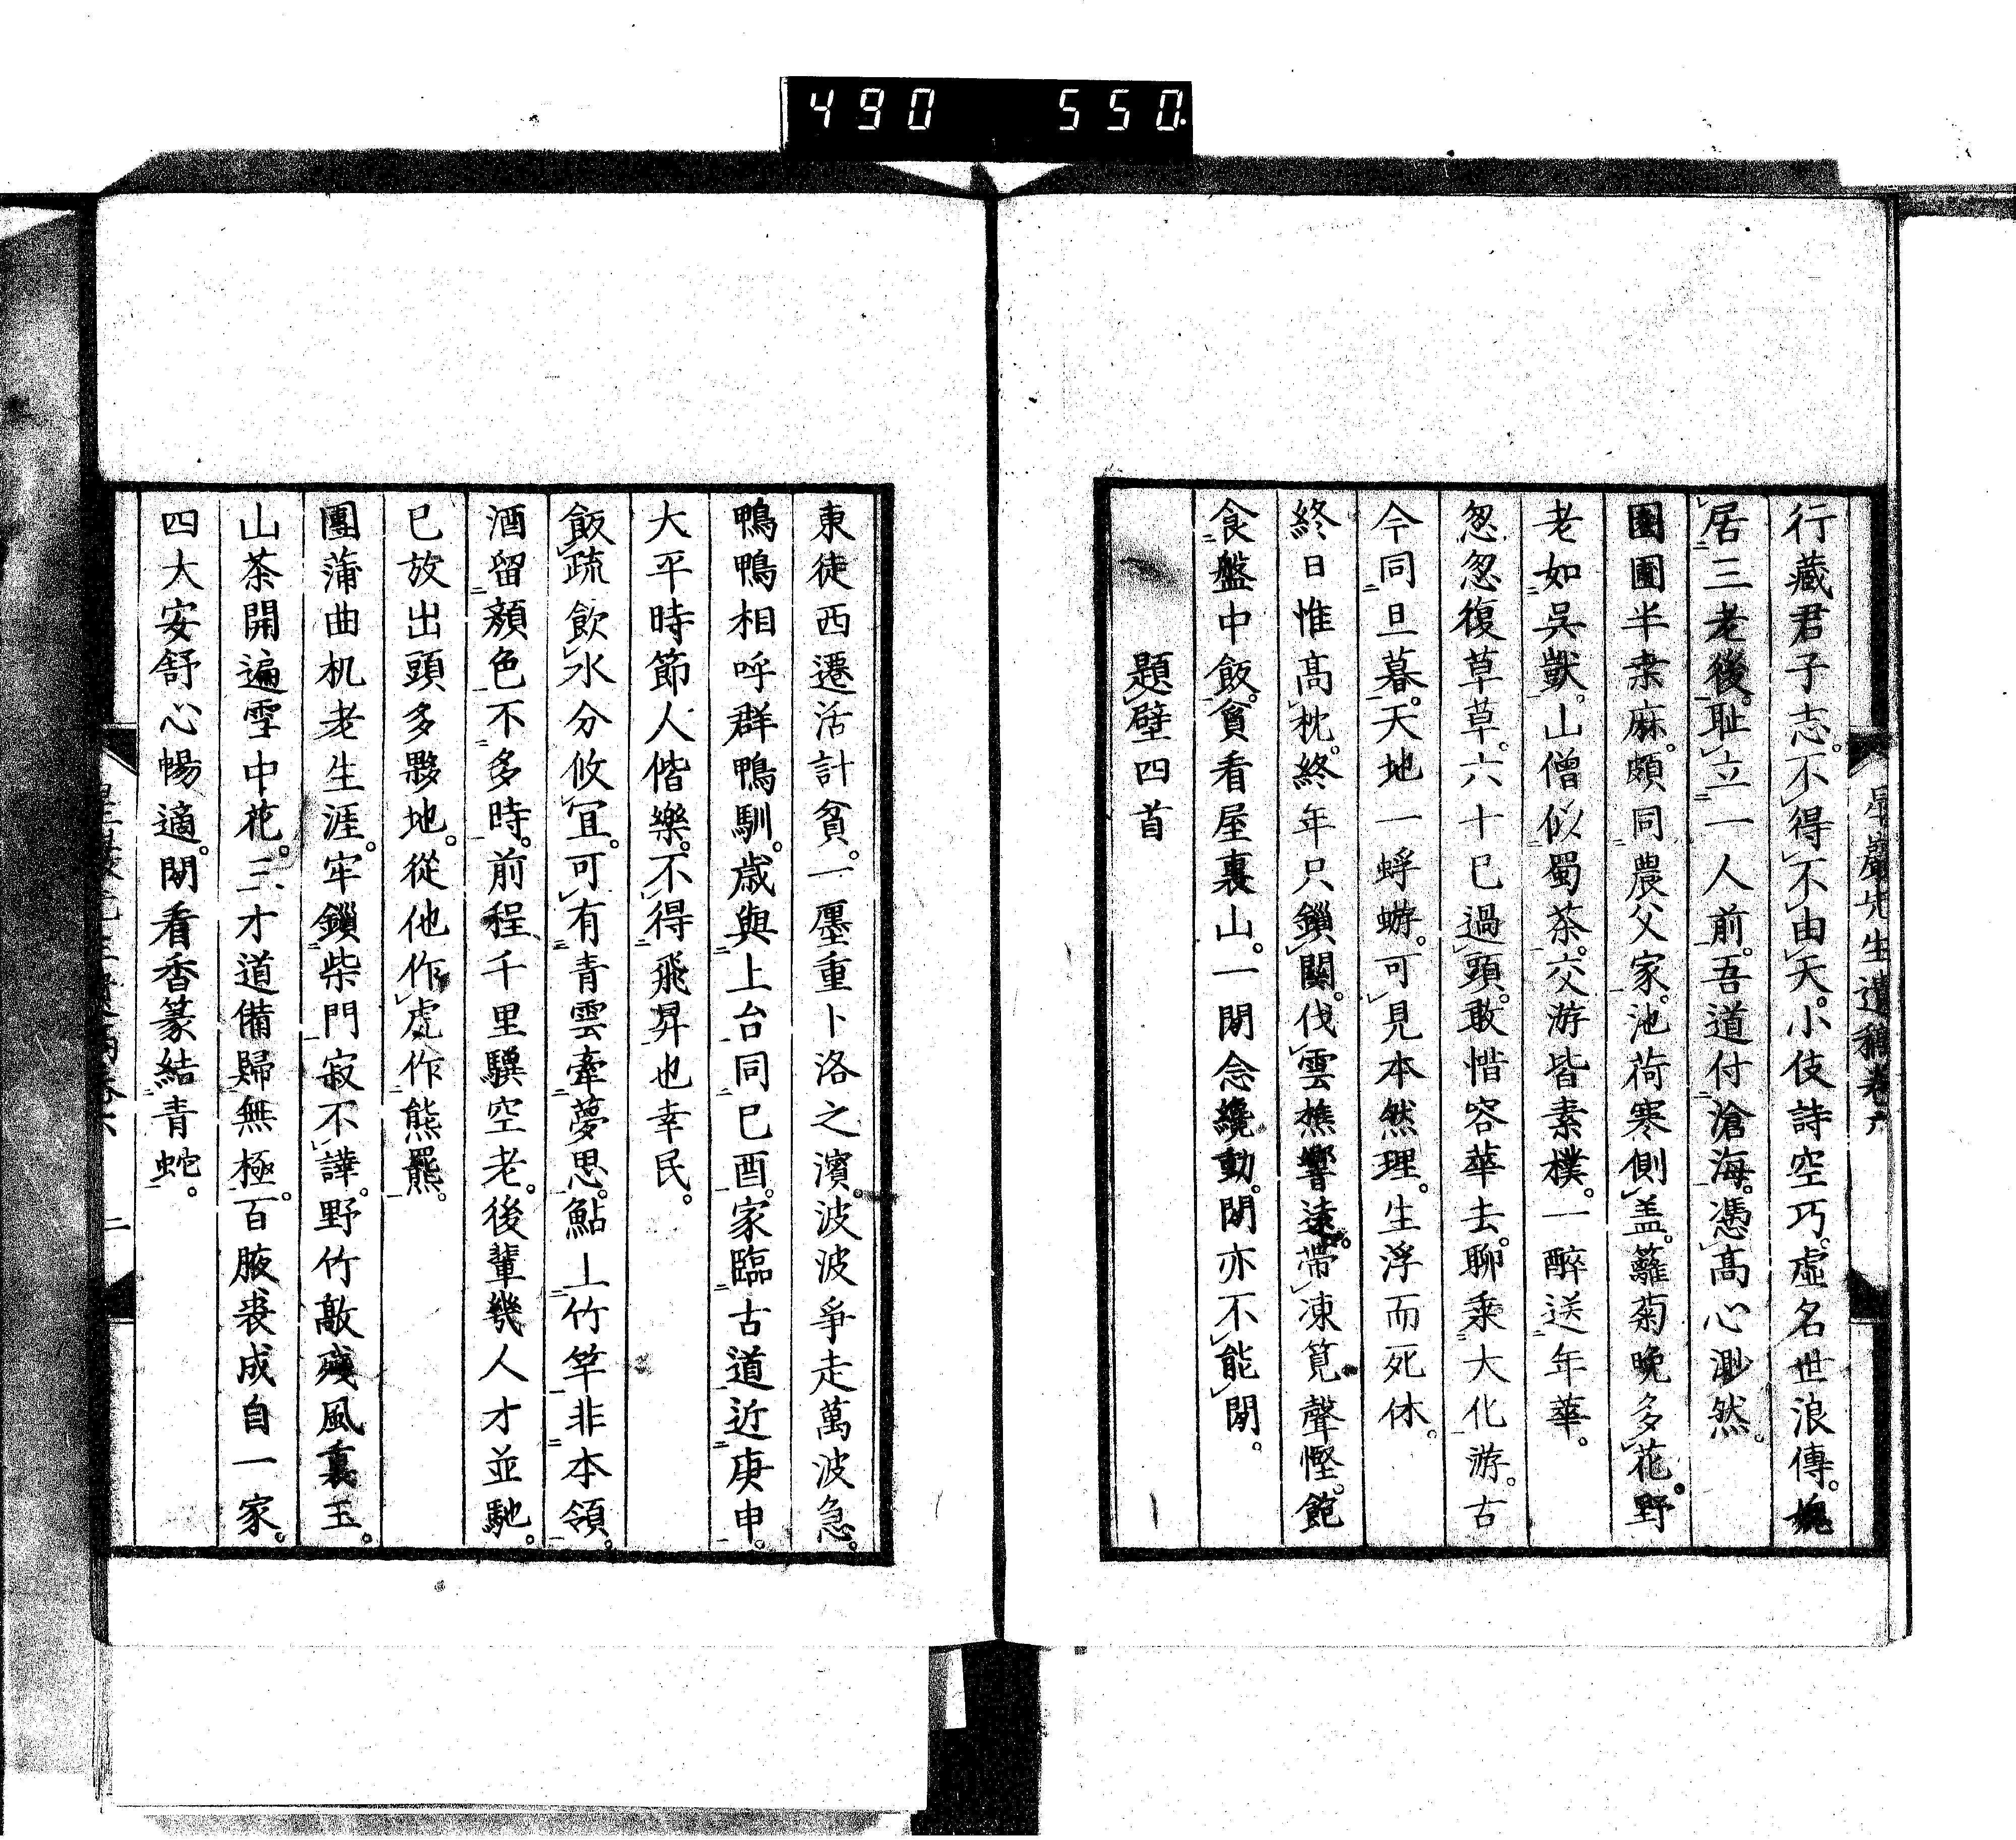 490 550.
星巖先生遺稿卷六
行藏君子志。不得不由天。小伎詩空巧。虛名世浪傳。媿
居三老後。恥立一人前。吾道付滄海。憑高心渺然。
團團半桒麻。頗同農父家。池荷寒側盖。籬菊晚多花。野
老如吳獸。山僧似蜀茶。交游皆素樸。一醉送年華。
忽忽復草草。六十已過頭。敢惜容華去。聊乘大化游。古
今同旦暮。天地一蜉蝣。可見本然理。生浮而死休。
終日惟高枕。終年只鎖關。伐雲樵響遠。帶凍筧聲慳。飽
食盤中飯。貧看屋裏山。一閒念纔動。閒亦不能閒。
題壁四首
東徒西遷活計貧。一廛重卜洛之濱。波波爭走萬波急。
鴨鴨相呼群鴨馴。歳與上台同已酉。家臨古道近庚申。
大平時節人偕樂。不得飛昇也幸民。
飯疏飲水分攸宜。可有青雲牽夢思。鮎上竹竿非本領。
酒留顏色不多時。前程千里驥空老。後輩幾人才並馳。
已放出頭多夥地。從他作虎作熊羆。
團蒲曲机老生涯。牢鎖柴門寂不譁。野竹敲殘風裏玉。
山茶開遍雪中花。三才道備歸無極。百腋裘成自一家。
四大安舒心暢適。閒看香篆結青蛇。
星巖先生遺稿卷六
二